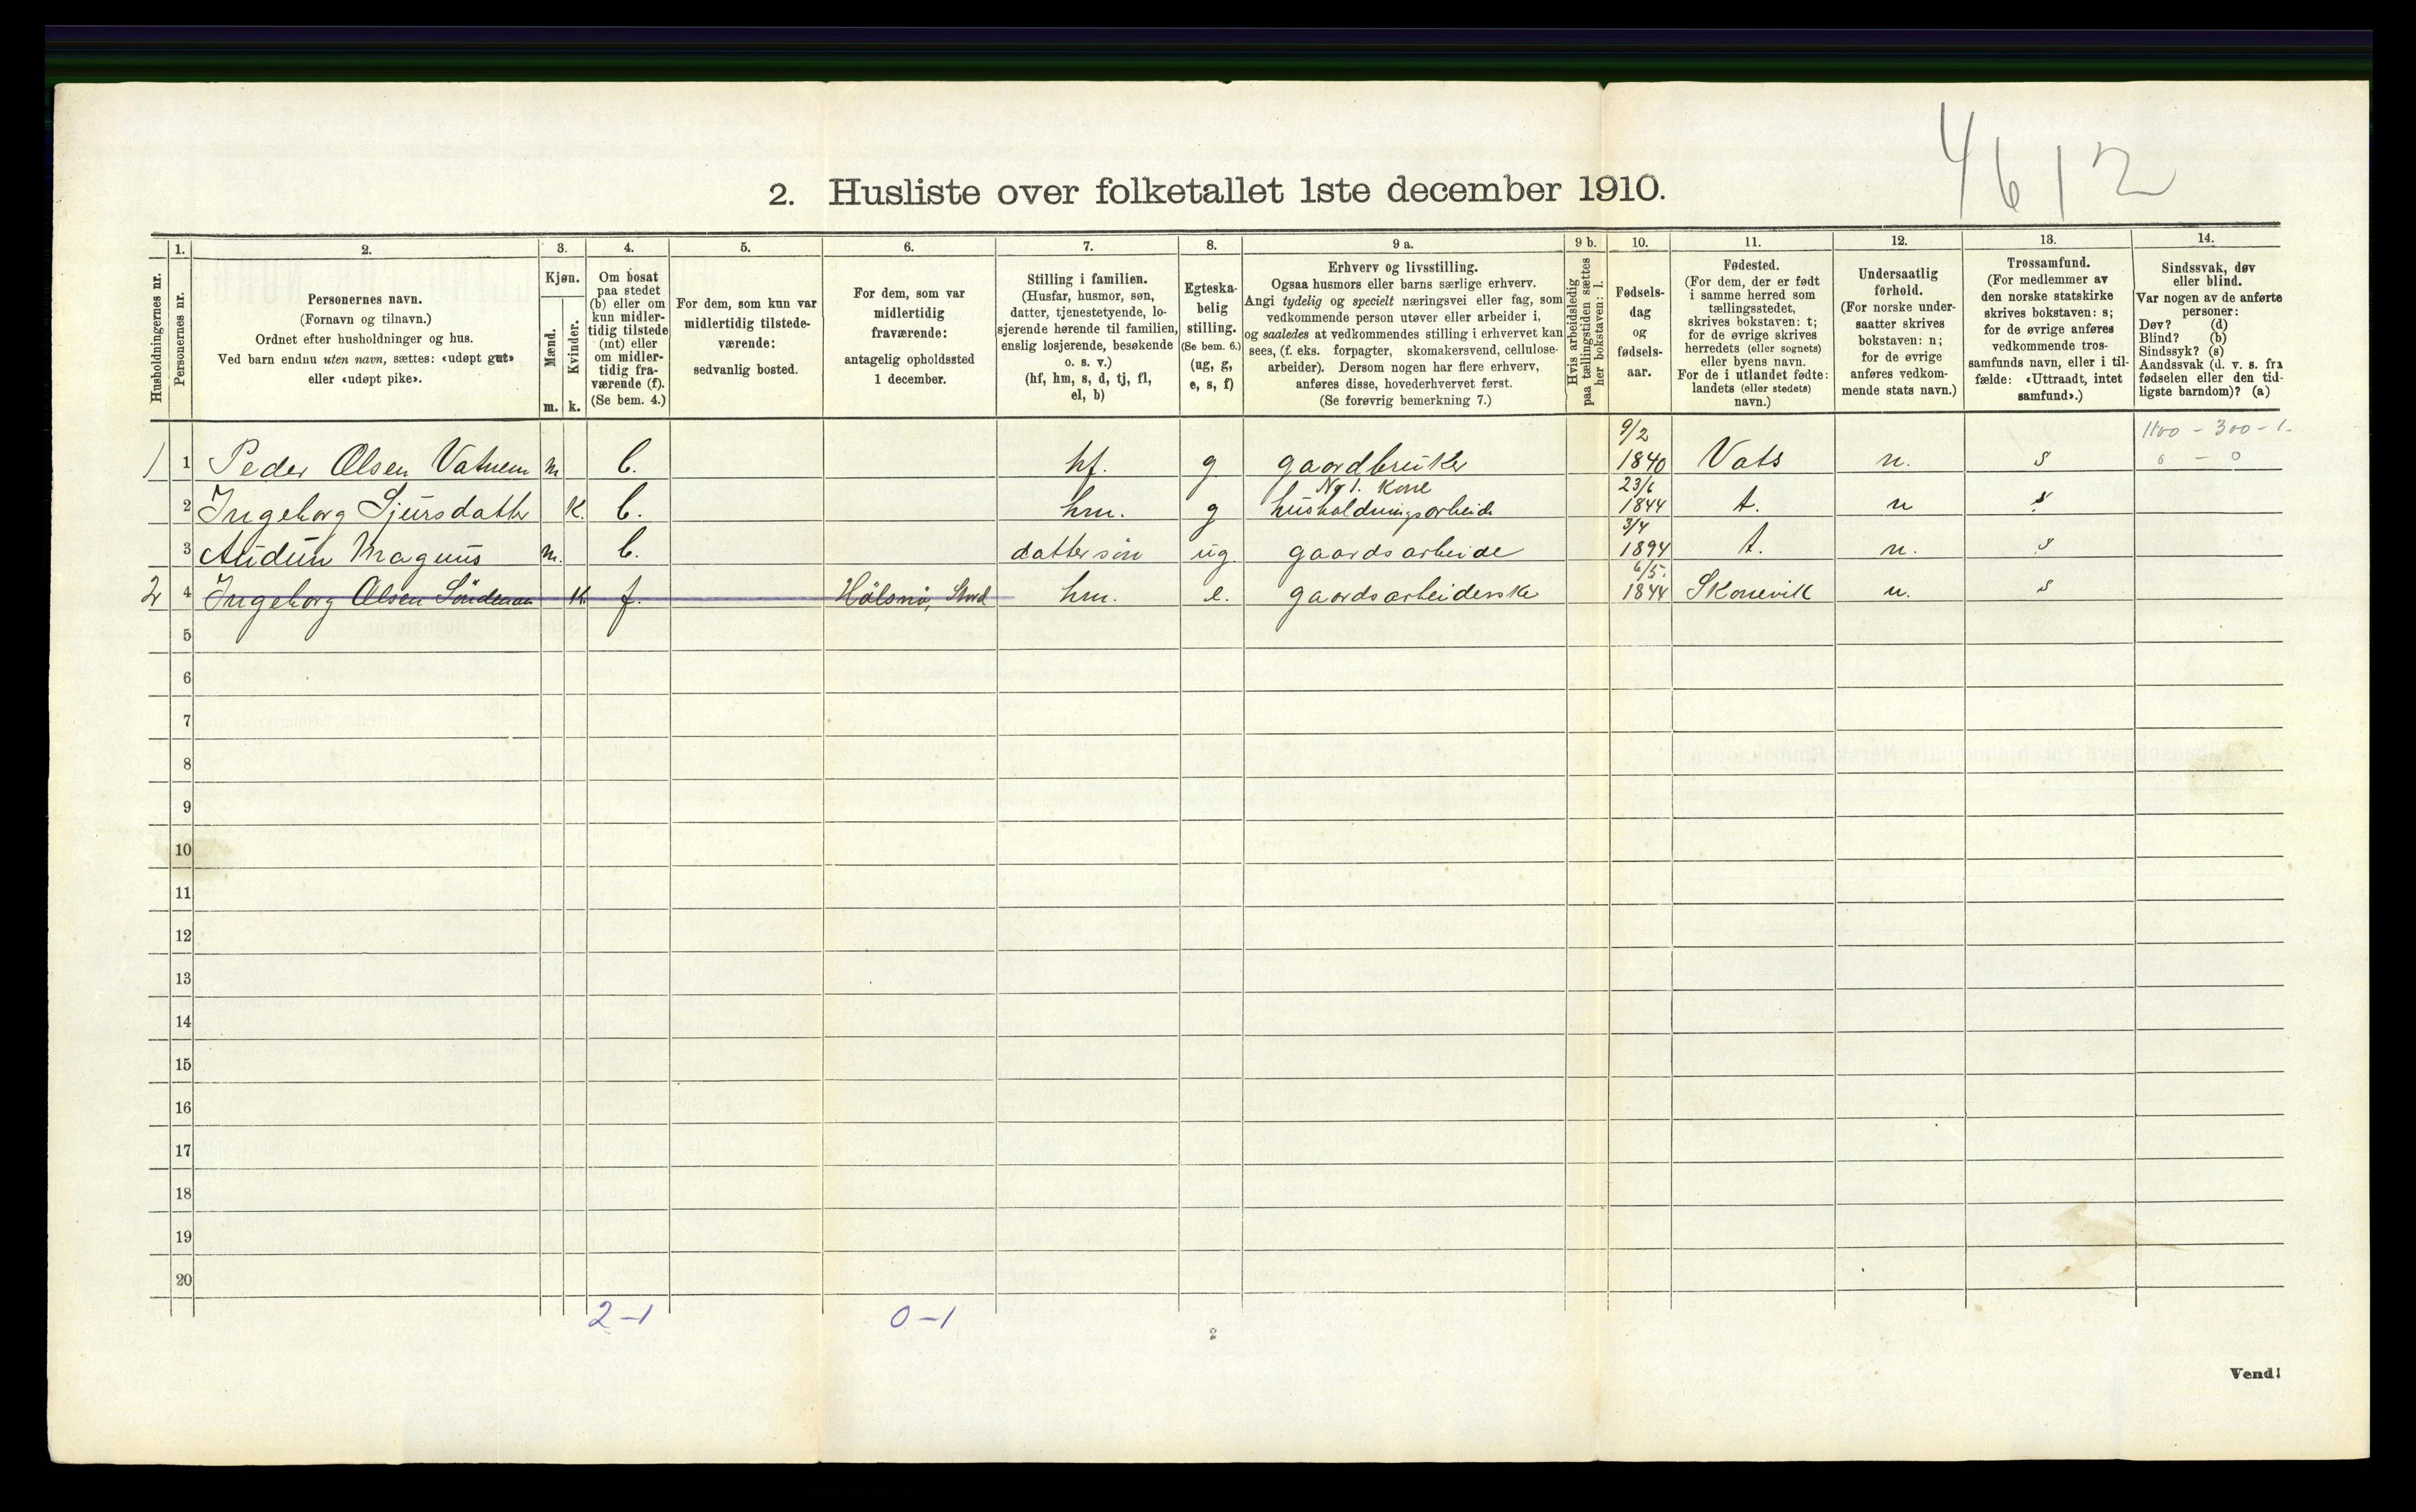 4612
2. Husliste over folketallet 1ste december 1910.
Husholdningernes nr.
1.
Personernes nr.
2.
Personernes navn.
(Fornavn og tilnavn.)
Ordnet efter husholdninger og hus.
Ved barn endnu uten navn, sættes: «udøpt gut»
eller «udøpt pike».
3.
Kjøn.
Mænd.
Kvinder.
m. k.
4.
Om bosat
paa stedet
(b) eller om
kun midler-
tidig tilstede
(mt) eller
om midler-
tidig fra-
værende (f).
(Se bem. 4.)
5.
For dem, som kun var
midlertidig tilstede-
værende:
sedvanlig bosted.
6.
For dem, som var
midlertidig
fraværende:
antagelig opholdssted
1 december.
7.
Stilling i familien.
(Husfar, husmor, søn,
datter, tjenestetyende, lo-
sjerende hørende til familien,
enslig losjerende, besøkende
o. s. v.)
(hf, hm, s, d, tj, fl,
el, b)
8.
Egteska-
belig
stilling.
(Se bem. 6.)
(ug, g,
e, s, f)
9 a.
Erhverv og livsstilling.
Ogsaa husmors eller barns særlige erhverv.
Angi tydelig og specielt næringsvei eller fag, som
vedkommende person utøver eller arbeider i,
og saaledes at vedkommendes stilling i erhvervet kan
sees, (f. eks. forpagter, skomakersvend, cellulose-
arbeider). Dersom nogen har flere erhverv,
anføres disse, hovederhvervet først.
(Se forøvrig bemerkning 7.)
9 b.
Hvis arbeidsledig
paa tællingstiden sættes
her bokstaven: l.
10.
Fødsels-
dag
og
fødsels-
aar.
11.
Fødested.
(For dem, der er født
i samme herred som
tællingsstedet,
skrives bokstaven: t;
for de øvrige skrives
herredets (eller sognets)
eller byens navn.
For de i utlandet fødte:
landets (eller stedets)
navn.)
12.
Undersaatlig
forhold.
(For norske under-
saatter skrives
bokstaven: n;
for de øvrige
anføres vedkom-
mende stats navn.)
13.
Trossamfund.
(For medlemmer av
den norske statskirke
skrives bokstaven: s;
for de øvrige anføres
vedkommende tros-
samfunds navn, eller i til-
fælde: «Uttraadt, intet
samfund».)
14.
Sindssvak, døv
eller blind.
Var nogen av de anførte
personer:
Døv? (d)
Blind? (b)
Sindssyk? (s)
Aandssvak (d. v. s. fra
fødselen eller den tid-
ligste barndom)? (a)
9/2 1100 - 300 - 1.
1 1 Peder Olsen Vatnem m b. hf. g gaardbruker 1840 Vats n. s 0 - 0
No 1. Kone 23/6
2 Ingeborg Sjursdatter K. b. hm. g husholdningsarbeide 1844 t. n s
3/4
3 Audun Magnus m. b. datter søn ug. gaardsarbeide 1894 t. n. s
6/5.
2 4 Ingeborg Olsen K. f. Stord hm. e. gaardsarbeiderske 1844 Skonevik n. s
5
6
7
8
9
10
11
12
13
14
15
16
17
18
19
20
2-1 0-1
2
Vend!